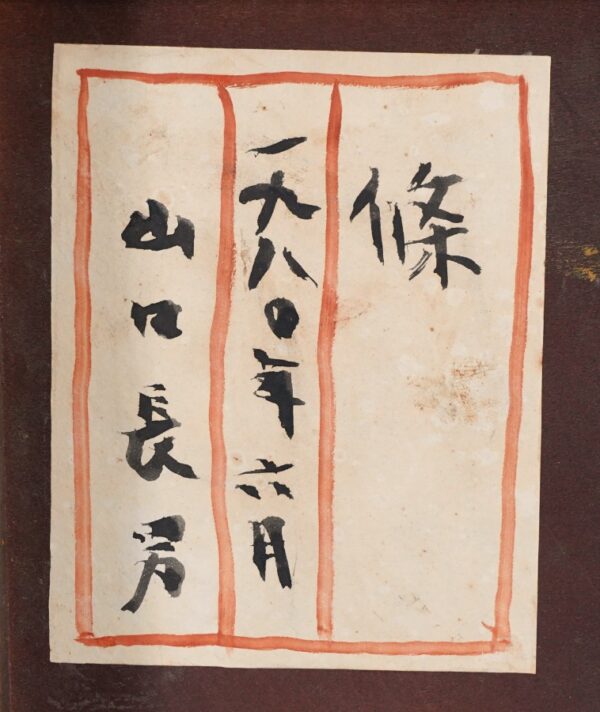 條
一九八〇年六月
山口長男